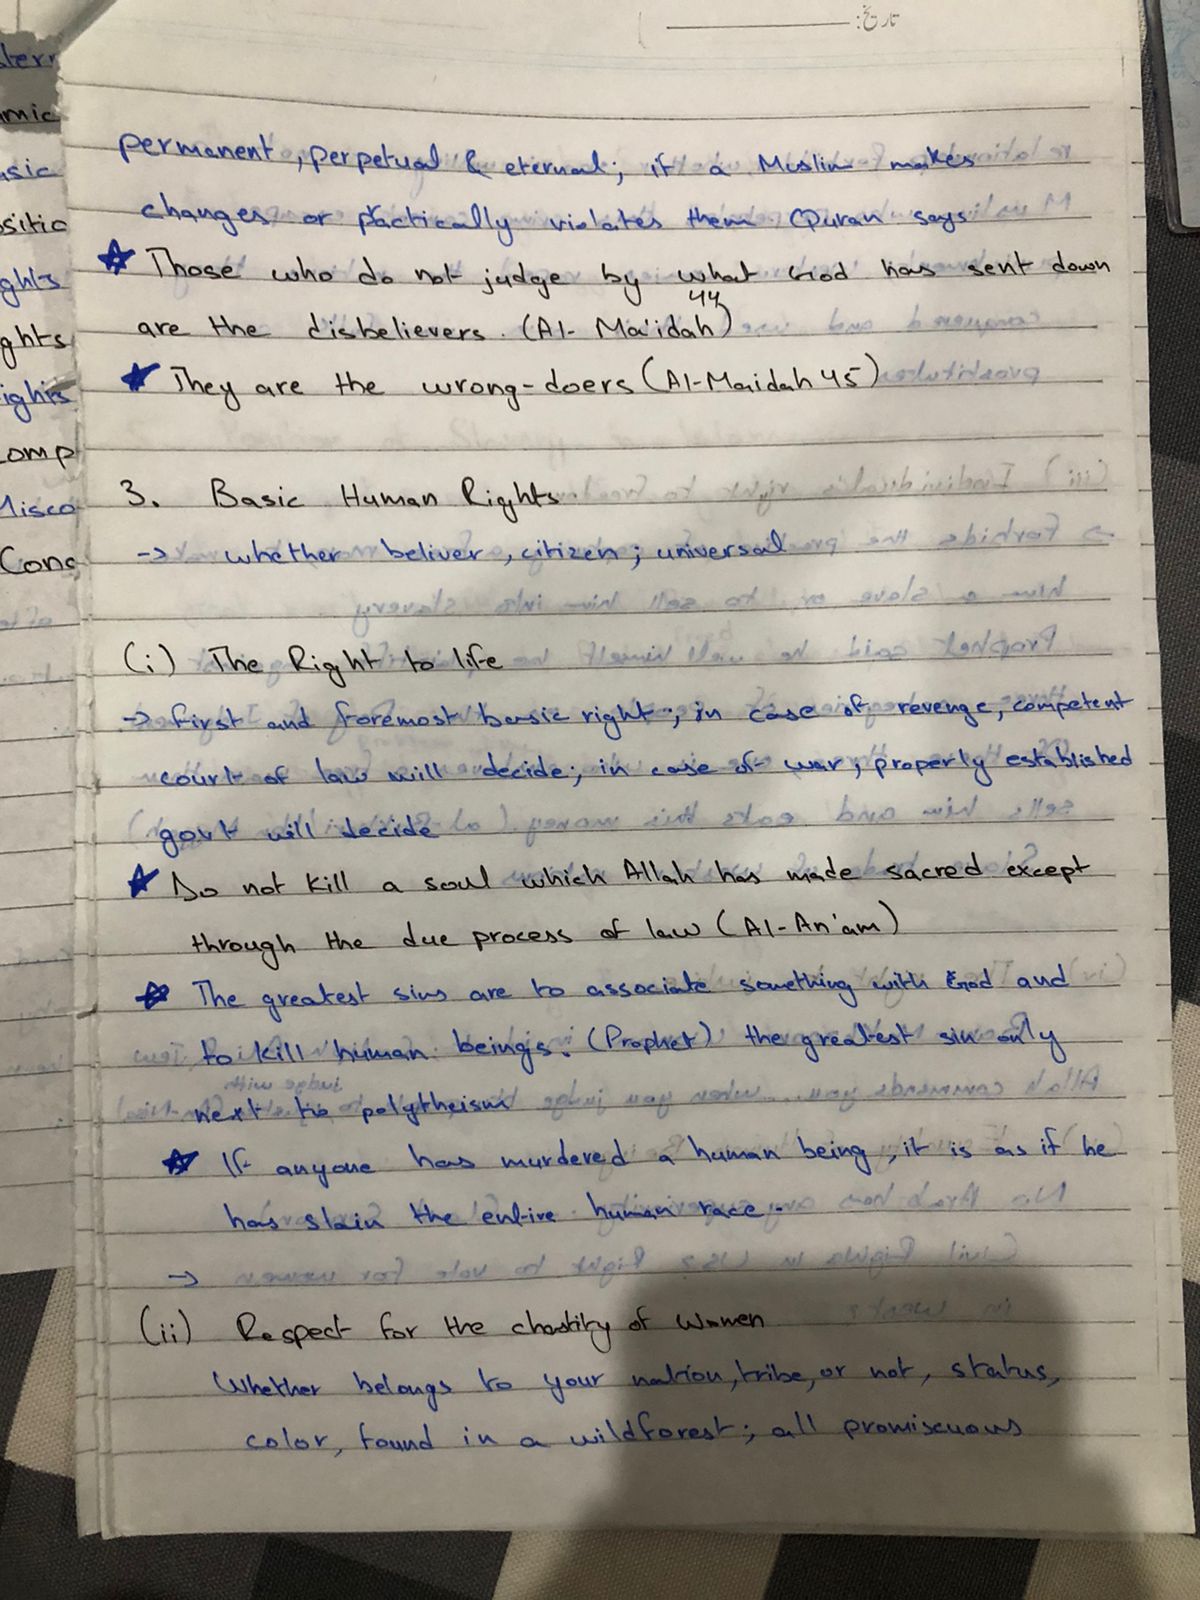 تاریخ:
permanent, perpetual & eternal; if a Muslim makes
changes or practically violates them Quran says
Those who do not judge by what God has sent down
are the disbelievers. (Al- Ma'idah 44)
They are the wrong-doers (Al-Maidah 45)
3. Basic Human Rights
-> whether beliver, citizen; universal
(i) The Right to life
-> First and foremost basic right; in case of revenge, competent
court of law will decide; in case of war, properly established
govt will decide
Do not kill a soul which Allah has made sacred except
through the due process of law (Al-An'am)
The greatest sins are to associate something with God and
to kill human beings. (Prophet) the greatest sin only
next to polytheism
If anyone has murdered a human being, it is as if he
has slain the entire human race.
->
(ii) Respect for the chastity of women
Whether belongs to your nation, tribe, or not, status,
color, found in a wildforest; all promiscuous